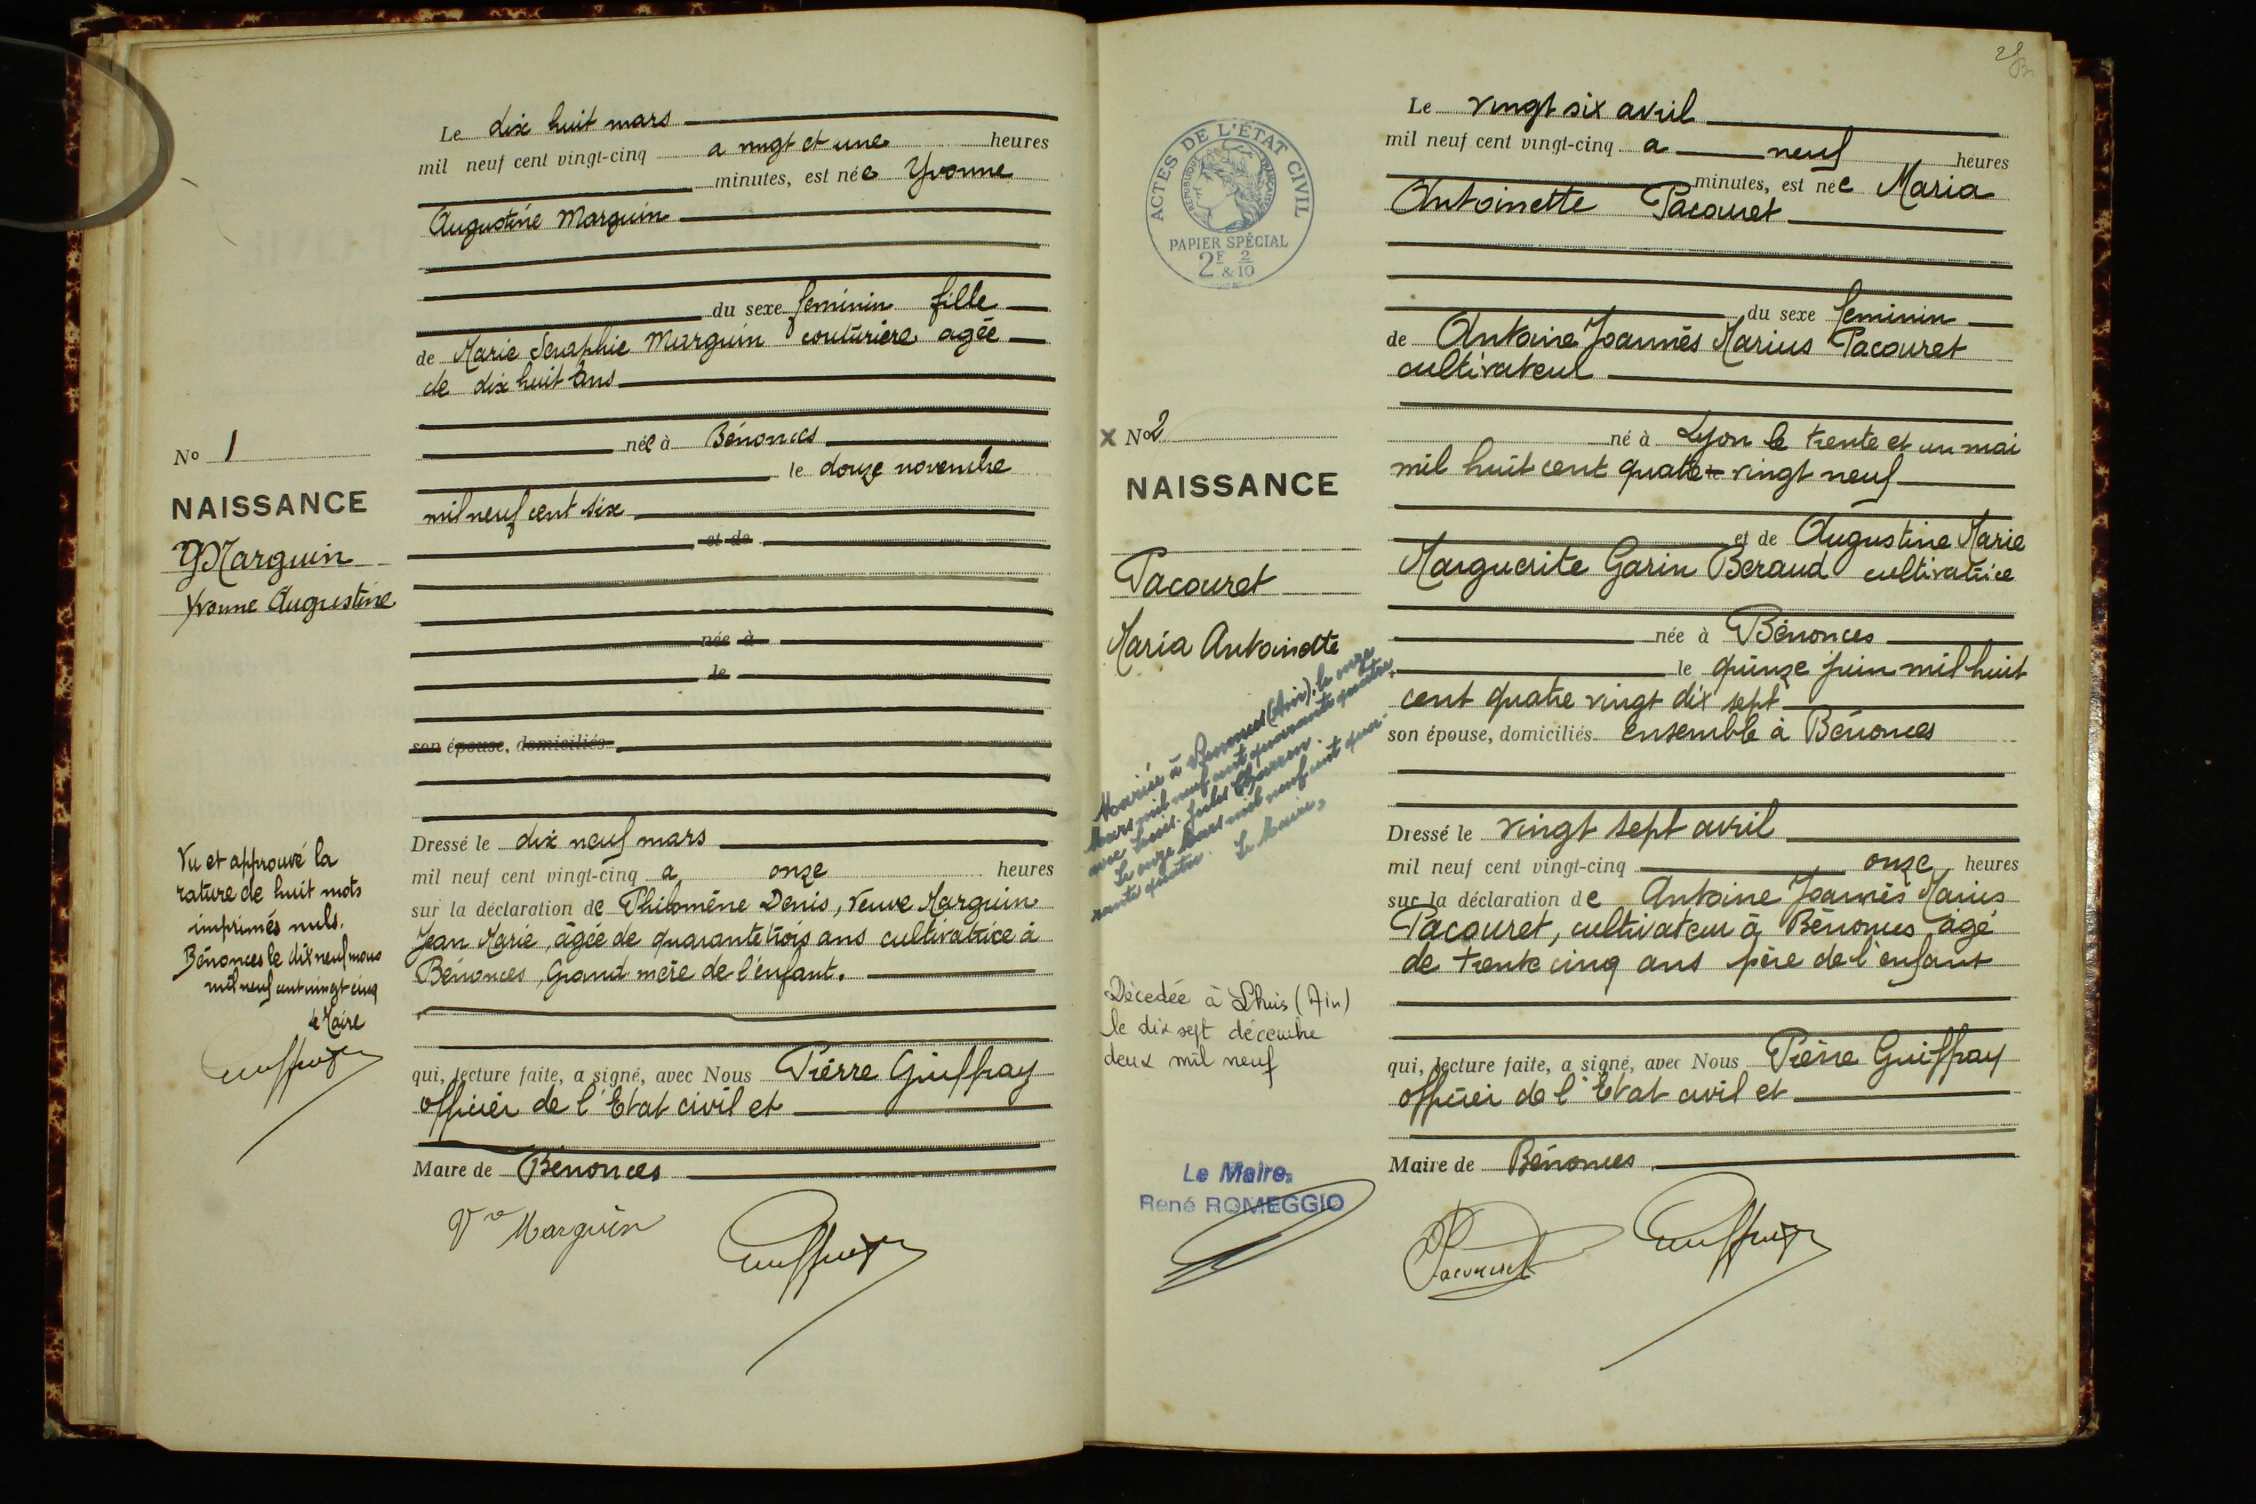 Le dix huit mars
mil neuf cent vingt-cinq a vingt et une heures
minutes, est née Yvonne
Augustine Marguin
du sexe feminin fille
de Marie Séraphie Marguin couturière agée
de dix huit ans
née à Bénonces
le douze novembre
mil neuf cent six
et de
née à
le
son épouse, domiciliés
Dressé le dix neuf mars
mil neuf cent vingt-cinq a onze heures
sur la déclaration de Philomène Denis, Veuve Marguin
Jean Marie, âgée de quarante trois ans cultivatrice à
Bénonces, Grand mère de l'enfant.
qui, lecture faite, a signé, avec Nous Pierre Guiffray
officier de l'Etat civil et
Maire de Bénonces
Vve Marguin
Guiffray
No 1
NAISSANCE
Marguin
Yvonne Augustine
Vu et approuvé la
rature de huit mots
imprimés nuls.
Bénonces le dix neuf mars
mil neuf cent vingt cinq
le Maire
Guiffray
2
ACTES DE L'ÉTAT CIVIL
RÉPUBLIQUE FRANÇAISE
PAPIER SPÉCIAL
2F & 2/10
No 2
NAISSANCE
Pacouret
Maria Antoinette
Mariée à Bénonces (Ain), le onze
Mars mil neuf cent quarante quatre,
avec Louis Jules Charron.
Le onze Mars mil neuf cent qua-
rante quatre. Le Maire,
Décedée à Lhuis (Ain)
le dix sept décembre
deux mil neuf
Le Maire,
René ROMEGGIO
Le vingt six avril
mil neuf cent vingt-cinq a neuf heures
minutes, est née Maria
Antoinette Pacouret
du sexe feminin
de Antoine Joannès Marius Pacouret
cultivateur
né à Lyon le trente et un mai
mil huit cent quatre vingt neuf
et de Augustine Marie
Marguerite Garin Beraud cultivatrice
née à Bénonces
le quinze juin mil huit
cent quatre vingt dix sept
son épouse, domiciliés ensemble à Bénonces
Dressé le vingt sept avril
mil neuf cent vingt-cinq onze heures
sur la déclaration de Antoine Joannès Marius
Pacouret, cultivateur à Bénonces agé
de trente cinq ans père de l'enfant
qui, lecture faite, a signé, avec Nous Pierre Guiffray
officier de l'Etat civil et
Maire de Bénonces
Pacouret
Guiffray